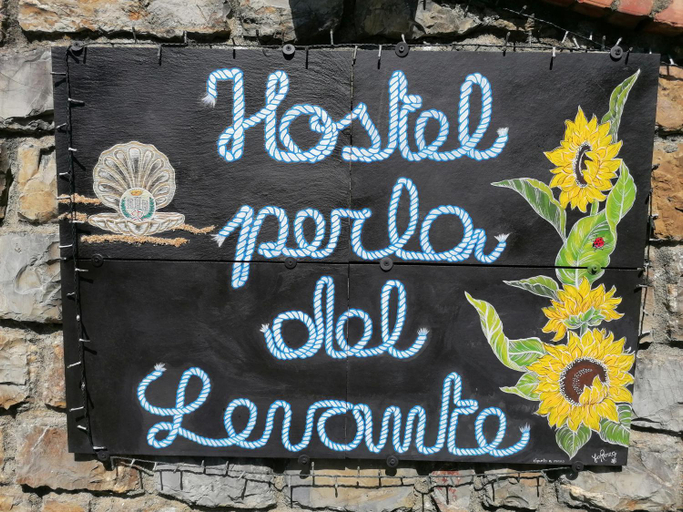 Hostel
perla
del
Levante